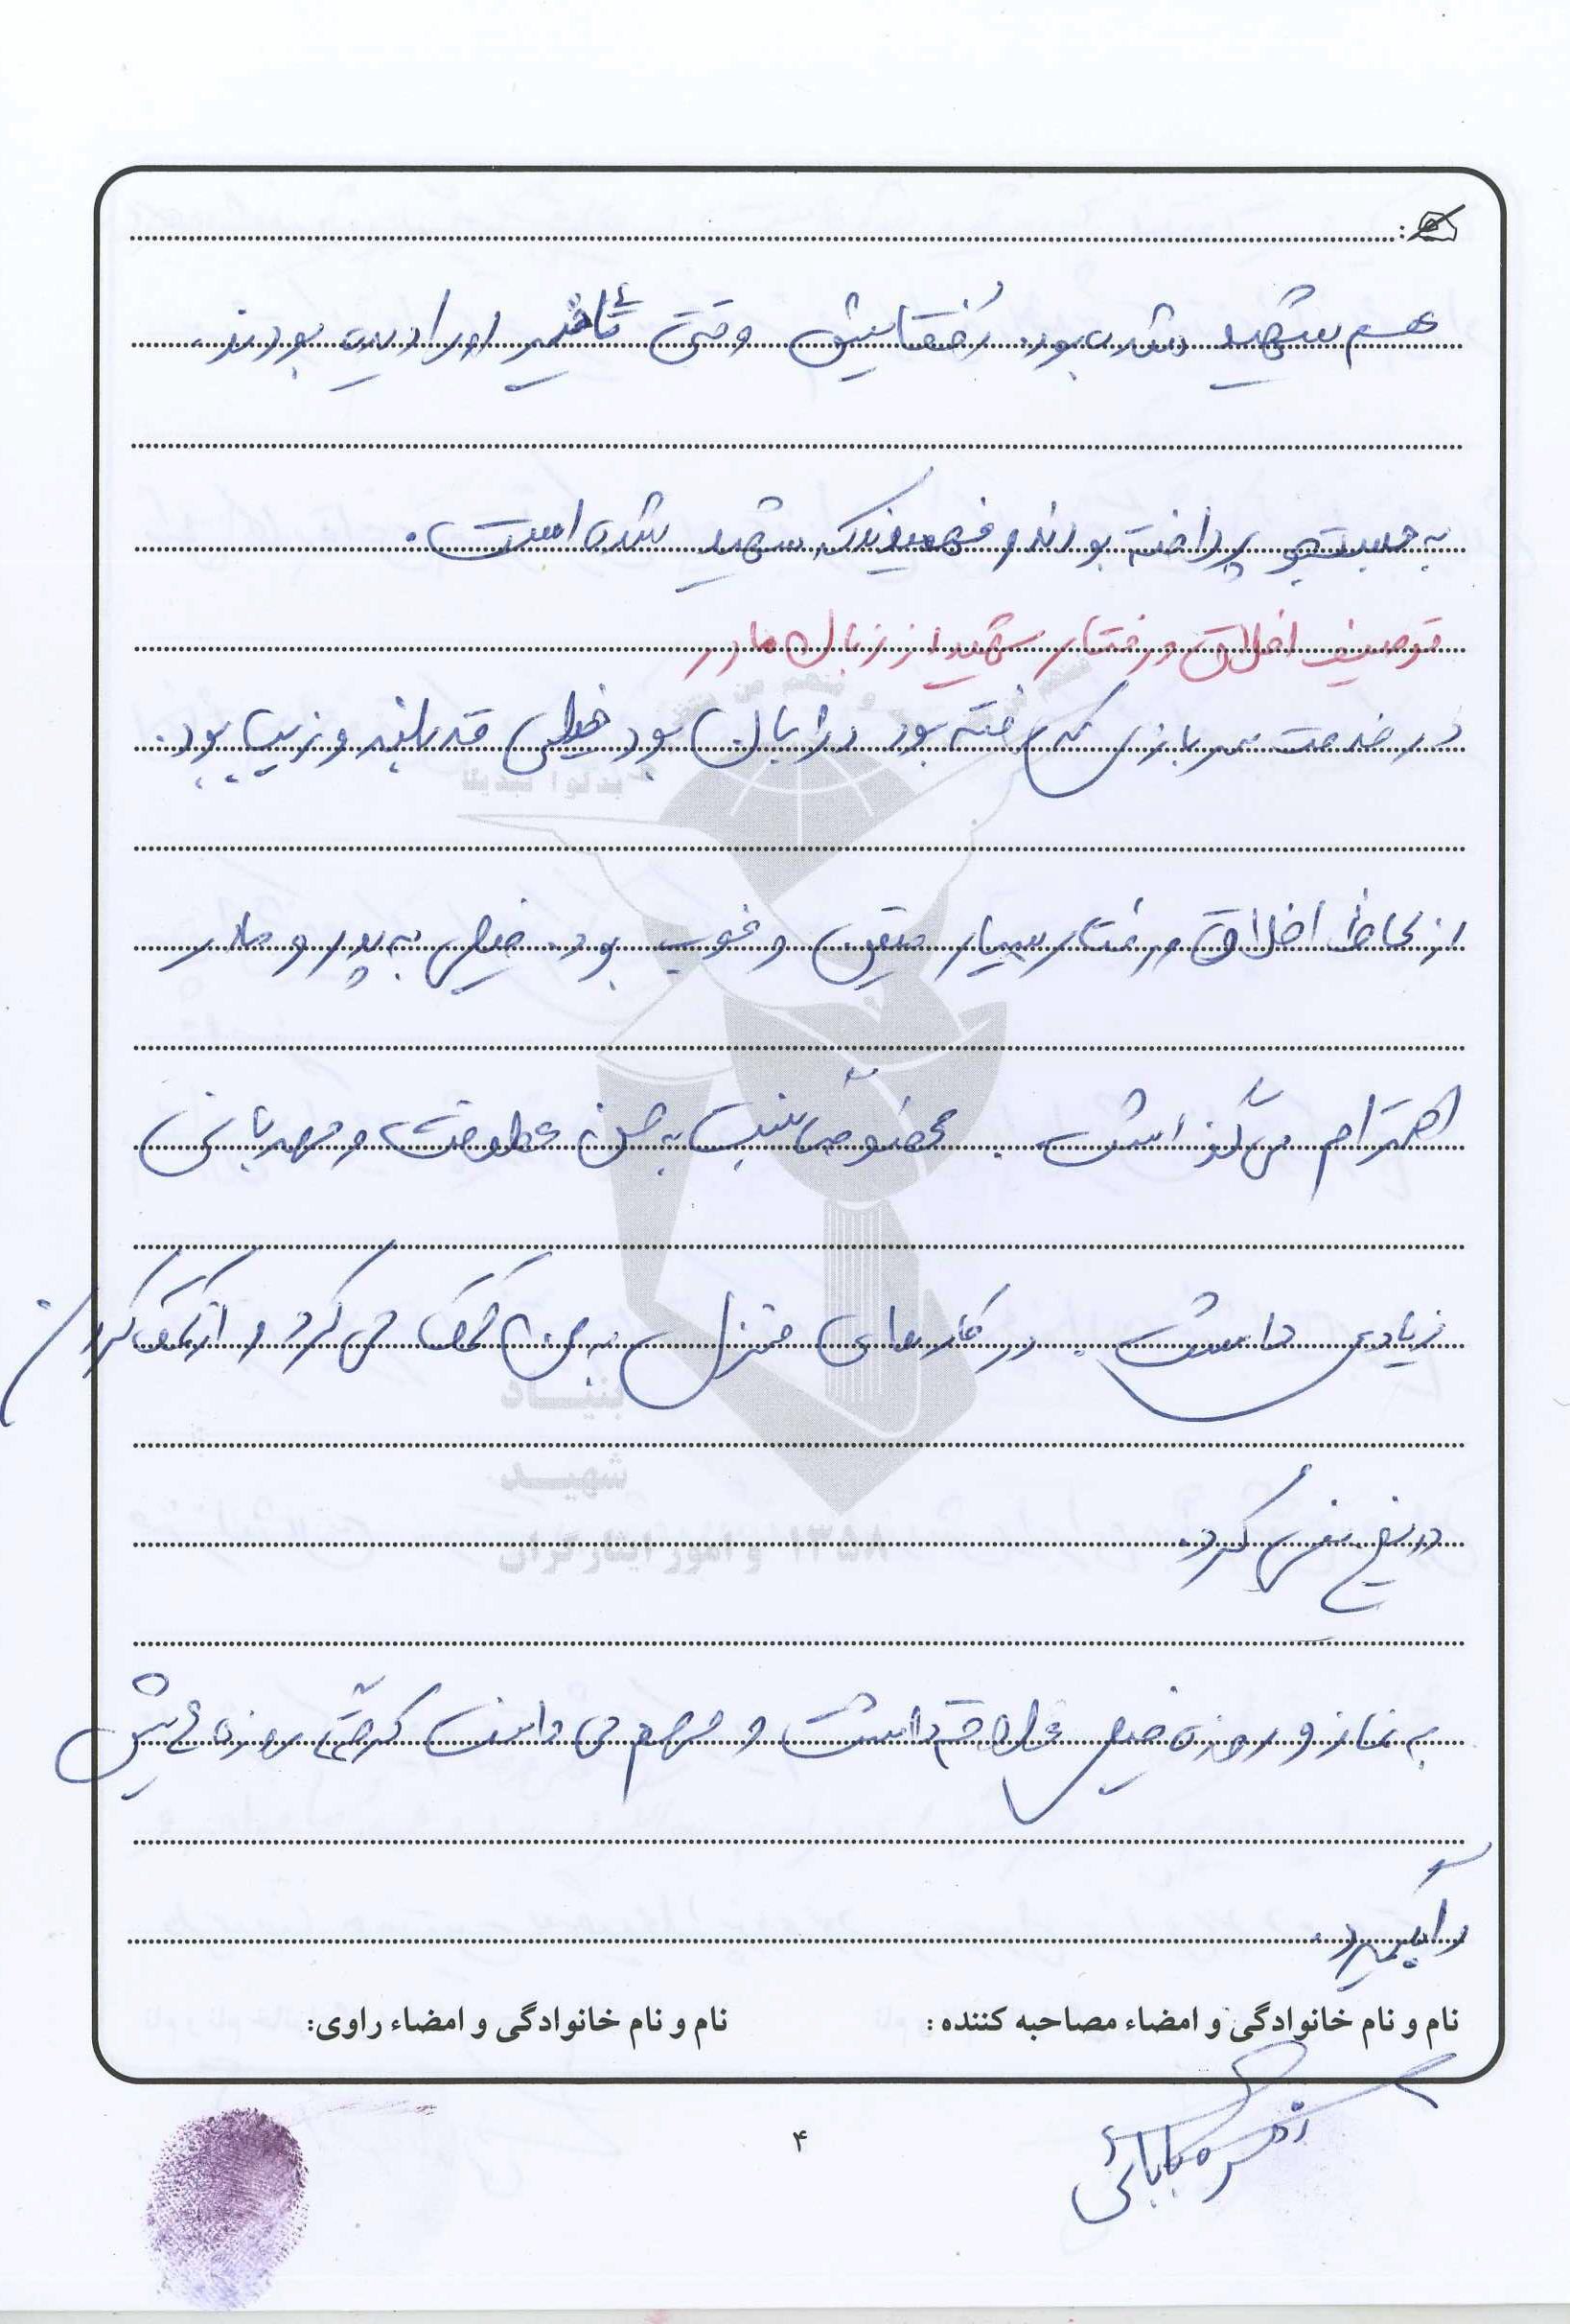 هم شهید شده بود. رفقایش وقتی تأخیر او را دیده بودند،
به جستجو پرداخته بودند و فهمیدند که شهید شده است.
توصیف اخلاق و رفتار شهید از زبان مادر
در خدمت سربازی که رفته بود در آبان بود خیلی قد بلند و زیبا بود.
از لحاظ اخلاق و رفتار بسیار متقی و خوب بود. خیلی به پدر و مادر
احترام می‌گذاشت. مخصوصاً نسبت به من عطوفت و مهربانی
زیادی داشت. در کارهای منزل به من کمک می‌کرد و از کمک کردن
دریغ نمی‌کرد.
به نماز و روزه خیلی علاقه داشت و مهم می‌دانست که حتماً روزه‌هایش
را بگیرد.
نام و نام خانوادگی و امضاء مصاحبه کننده :
نام و نام خانوادگی و امضاء راوی:
بنیاد
شهید
و امور ایثارگران ۱۳۵۸
بابائی
۴